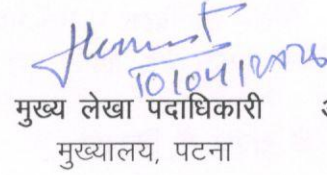 10/04/2026
मुख्य लेखा पदाधिकारी
मुख्यालय, पटना